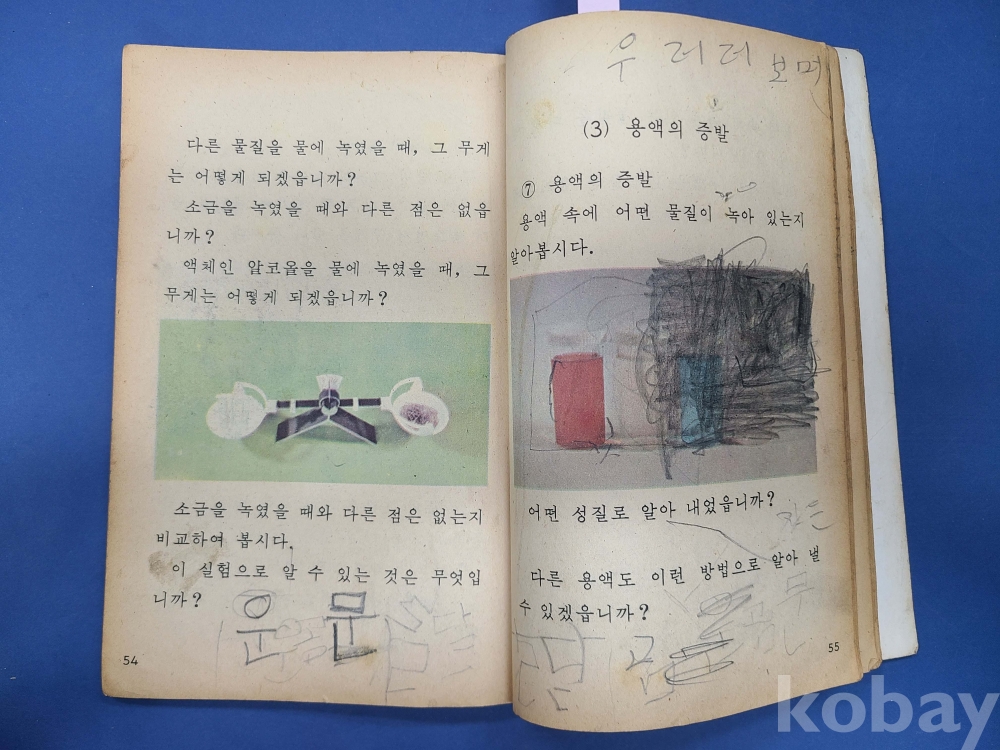 다른 물질을 물에 녹였을 때, 그 무게
는 어떻게 되겠읍니까?
소금을 녹였을 때와 다른 점은 없읍
니까?
액체인 알코올을 물에 녹였을 때, 그
무게는 어떻게 되겠읍니까?
소금을 녹였을 때와 다른 점은 없는지
비교하여 봅시다.
이 실험으로 알 수 있는 것은 무엇입
니까?
운 문
54
우 러러 보며
(3) 용액의 증발
⑦ 용액의 증발
용액 속에 어떤 물질이 녹아 있는지
알아봅시다.
어떤 성질로 알아 내었읍니까?
다른 용액도 이런 방법으로 알아 낼
수 있겠읍니까?
55
kobay